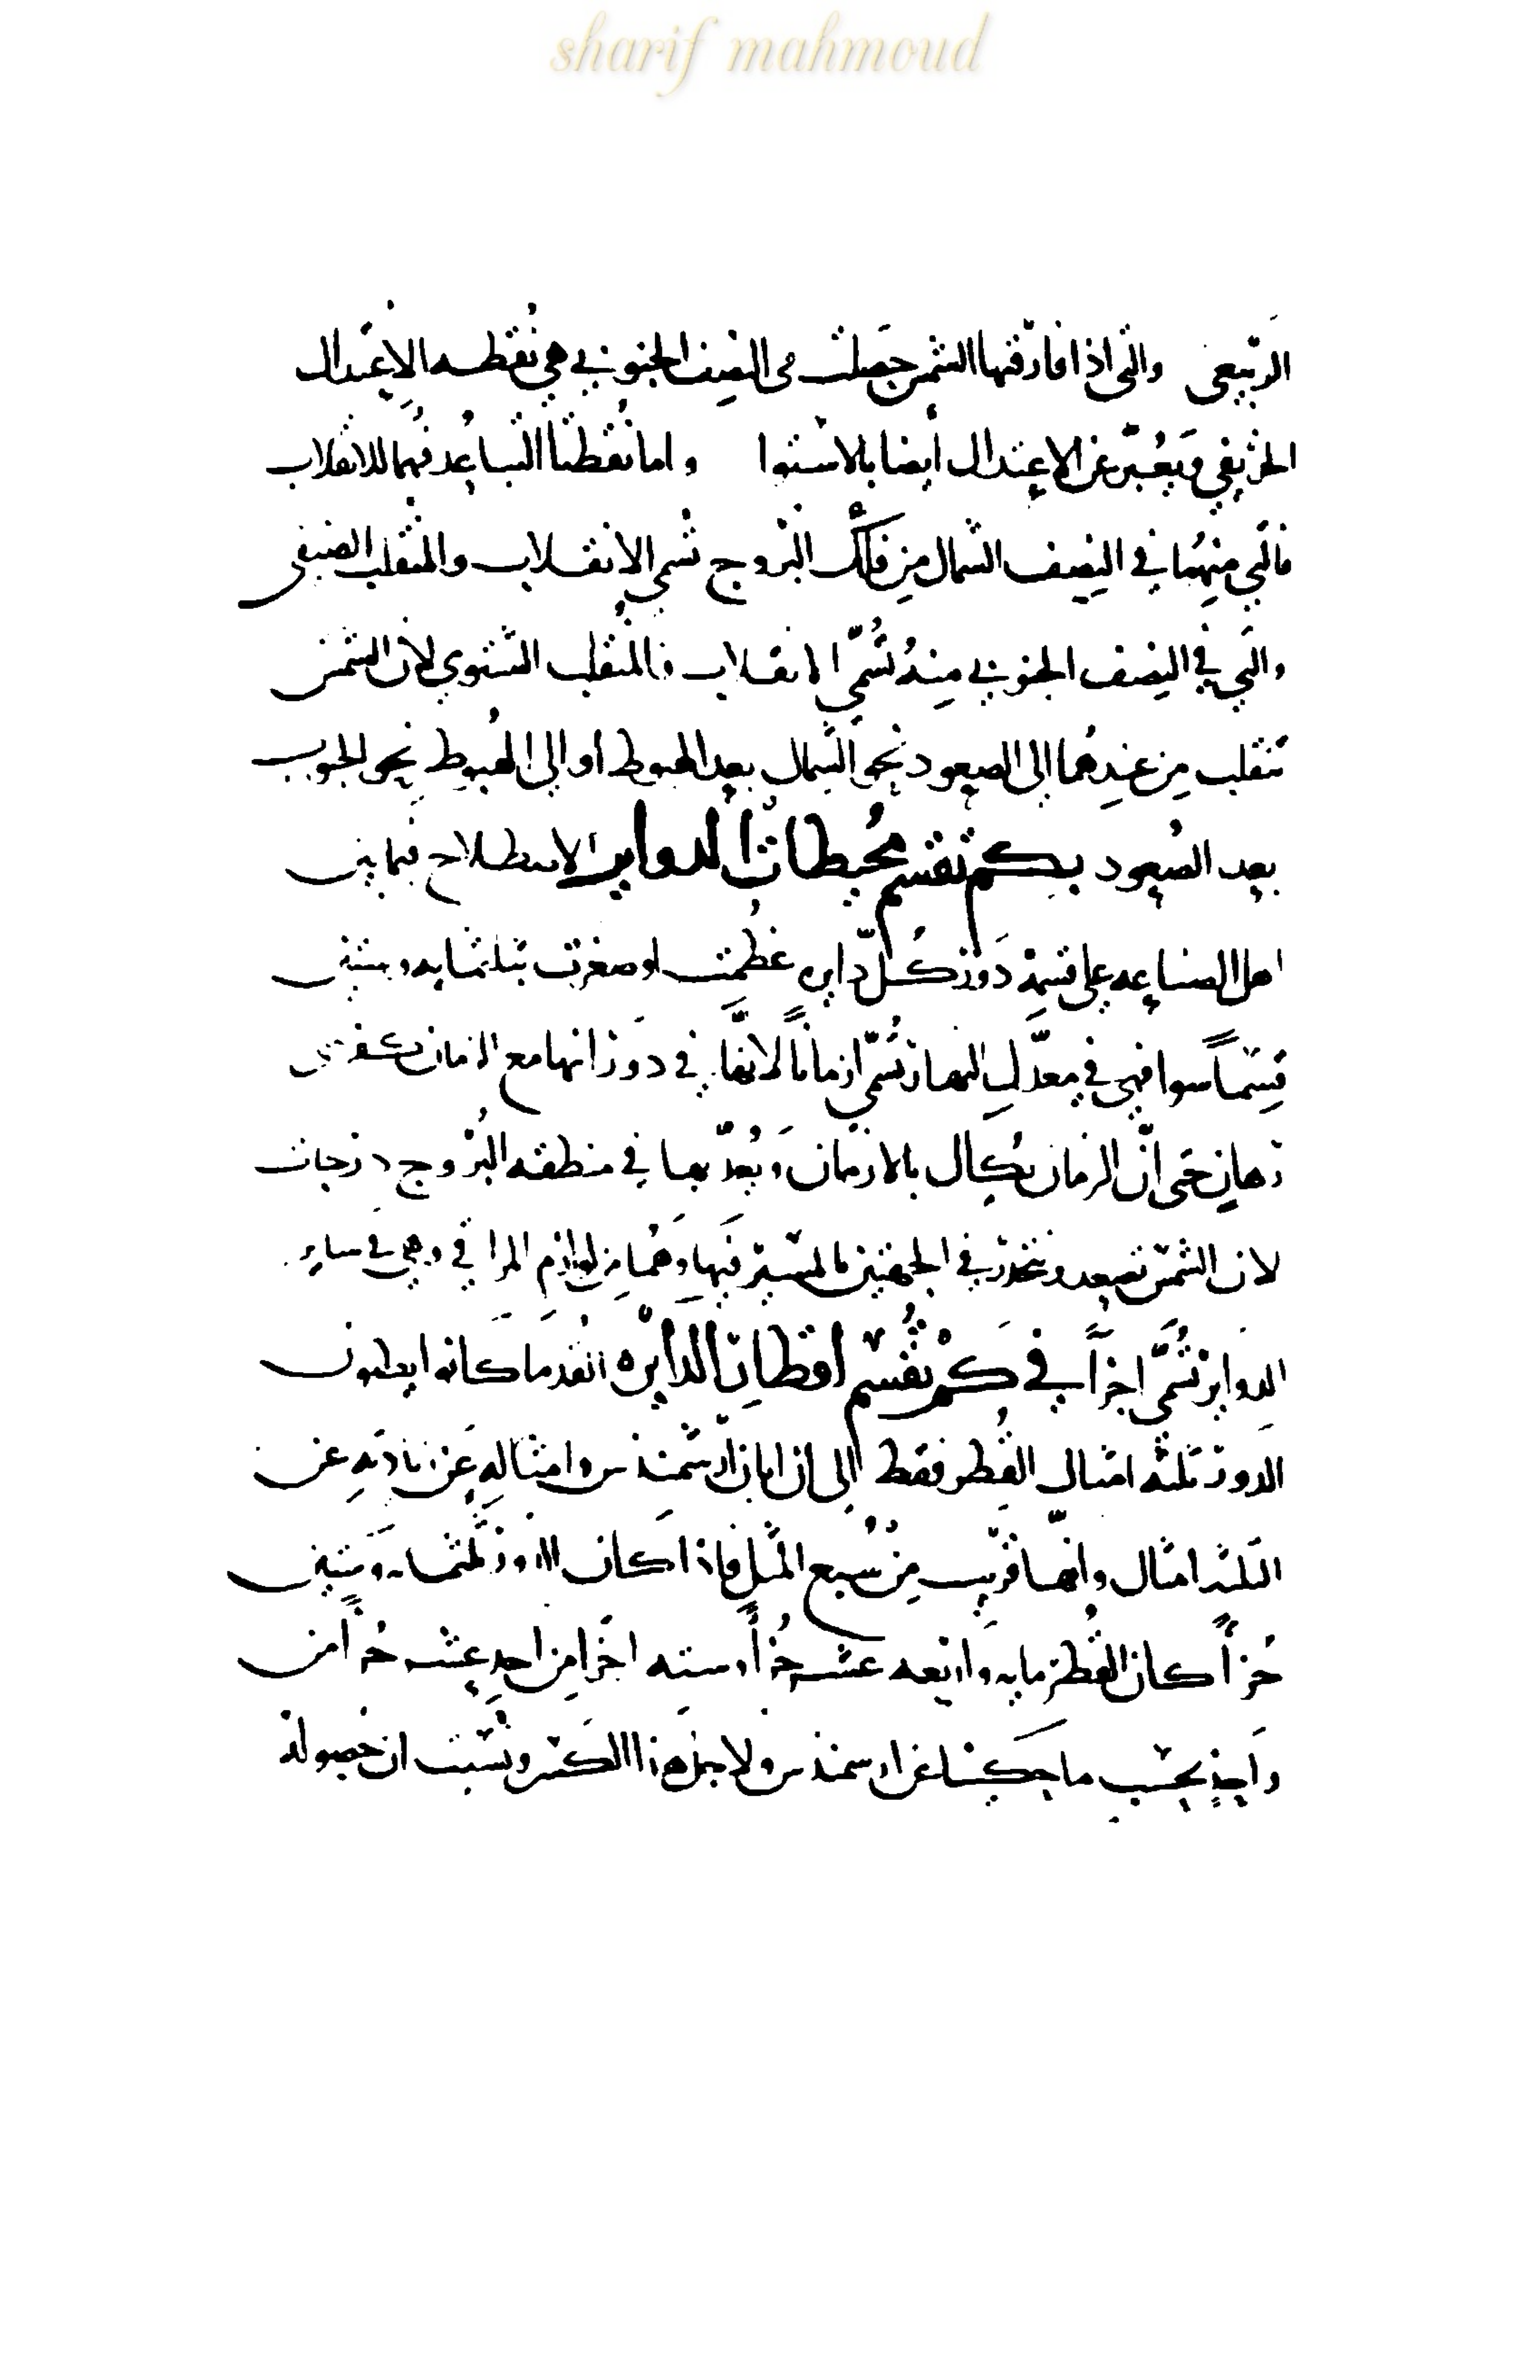 sharif mahmoud
الربيعى والتى اذا فارقتها الشمس حصلت فى النصف الجنوبي هي نقطه الاعتدال
الخريفي ويعبر عن الاعتدال أيضا بالاستوا واما نقطتا التباعد فهما للانقلاب
فالتي منهما في النصف الشمال من فلك البروج تسمى الانقلاب والمنقلب الصيفي
والتي في النصف الجنوبي منه تسمى الانقلاب فالمنقلب الشتوي لان الشمس
تنقلب من عندهما الى الصعود نحو الشمال بعد الهبوط او الى الهبوط نحو الجنوب
بعد الصعود بكم تقسم محيطات الدواير الاصطلاح فيما بين
اهل الصناعه على قسمة دور كل دايره عظمت او صغرت بثلثمايه وستين
قسماً سوا فهى في معدل النهار تسمى ازماناً لانها في دورانها مع الزمان كفرسى
رهان حتى ان الزمان يكال بالازمان ويعد بها في منطقه البروج درجات
لان الشمس تصعد وتنحدر في الجهتين بالمسير فيها وهما من لوازم المراقي وهي في ساير
الدواير تسمى اجزاً في كم تقسم اقطار الدايره القدما كانوا يعطون
الدور ثلثه امثال القطر فقط الى ان ابان ارشميذس وامثاله عن زيادته عن
الثلثه امثال وانها قريب من سبع المثل فاذا كان الدور ثلثمايه وستين
جزاً كان القطر مايه واربعه عشر جزاً وسته اجزا من احد عشر جزاً من
واحد بحسب ما حكينا عن ارشميذس ولاجل هذا الكسر ونسبت ان حصوله